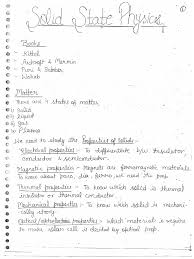 Solid State Physics
①
Books
- Kittel
- Ashcroft & Mermin
- Puri & Babbar
- Wahab
Matter
There are 4 states of matter
1) Solid
2) Liquid
3) Gas
4) Plasma
We need to study the Properties of Solids:-
- Electrical properties - To differentiate b/w Insulator, conductor & semiconductor.
- Magnetic properties - Magnets are ferromagnetic materials. To know about para, dia, ferro, we need the prop.
- Thermal properties - To know which solid is thermal insulator or thermal conductor.
- Mechanical properties - To know which solid is mechanically strong
- Optical properties - which materials is require to make all is decided by optical prop.